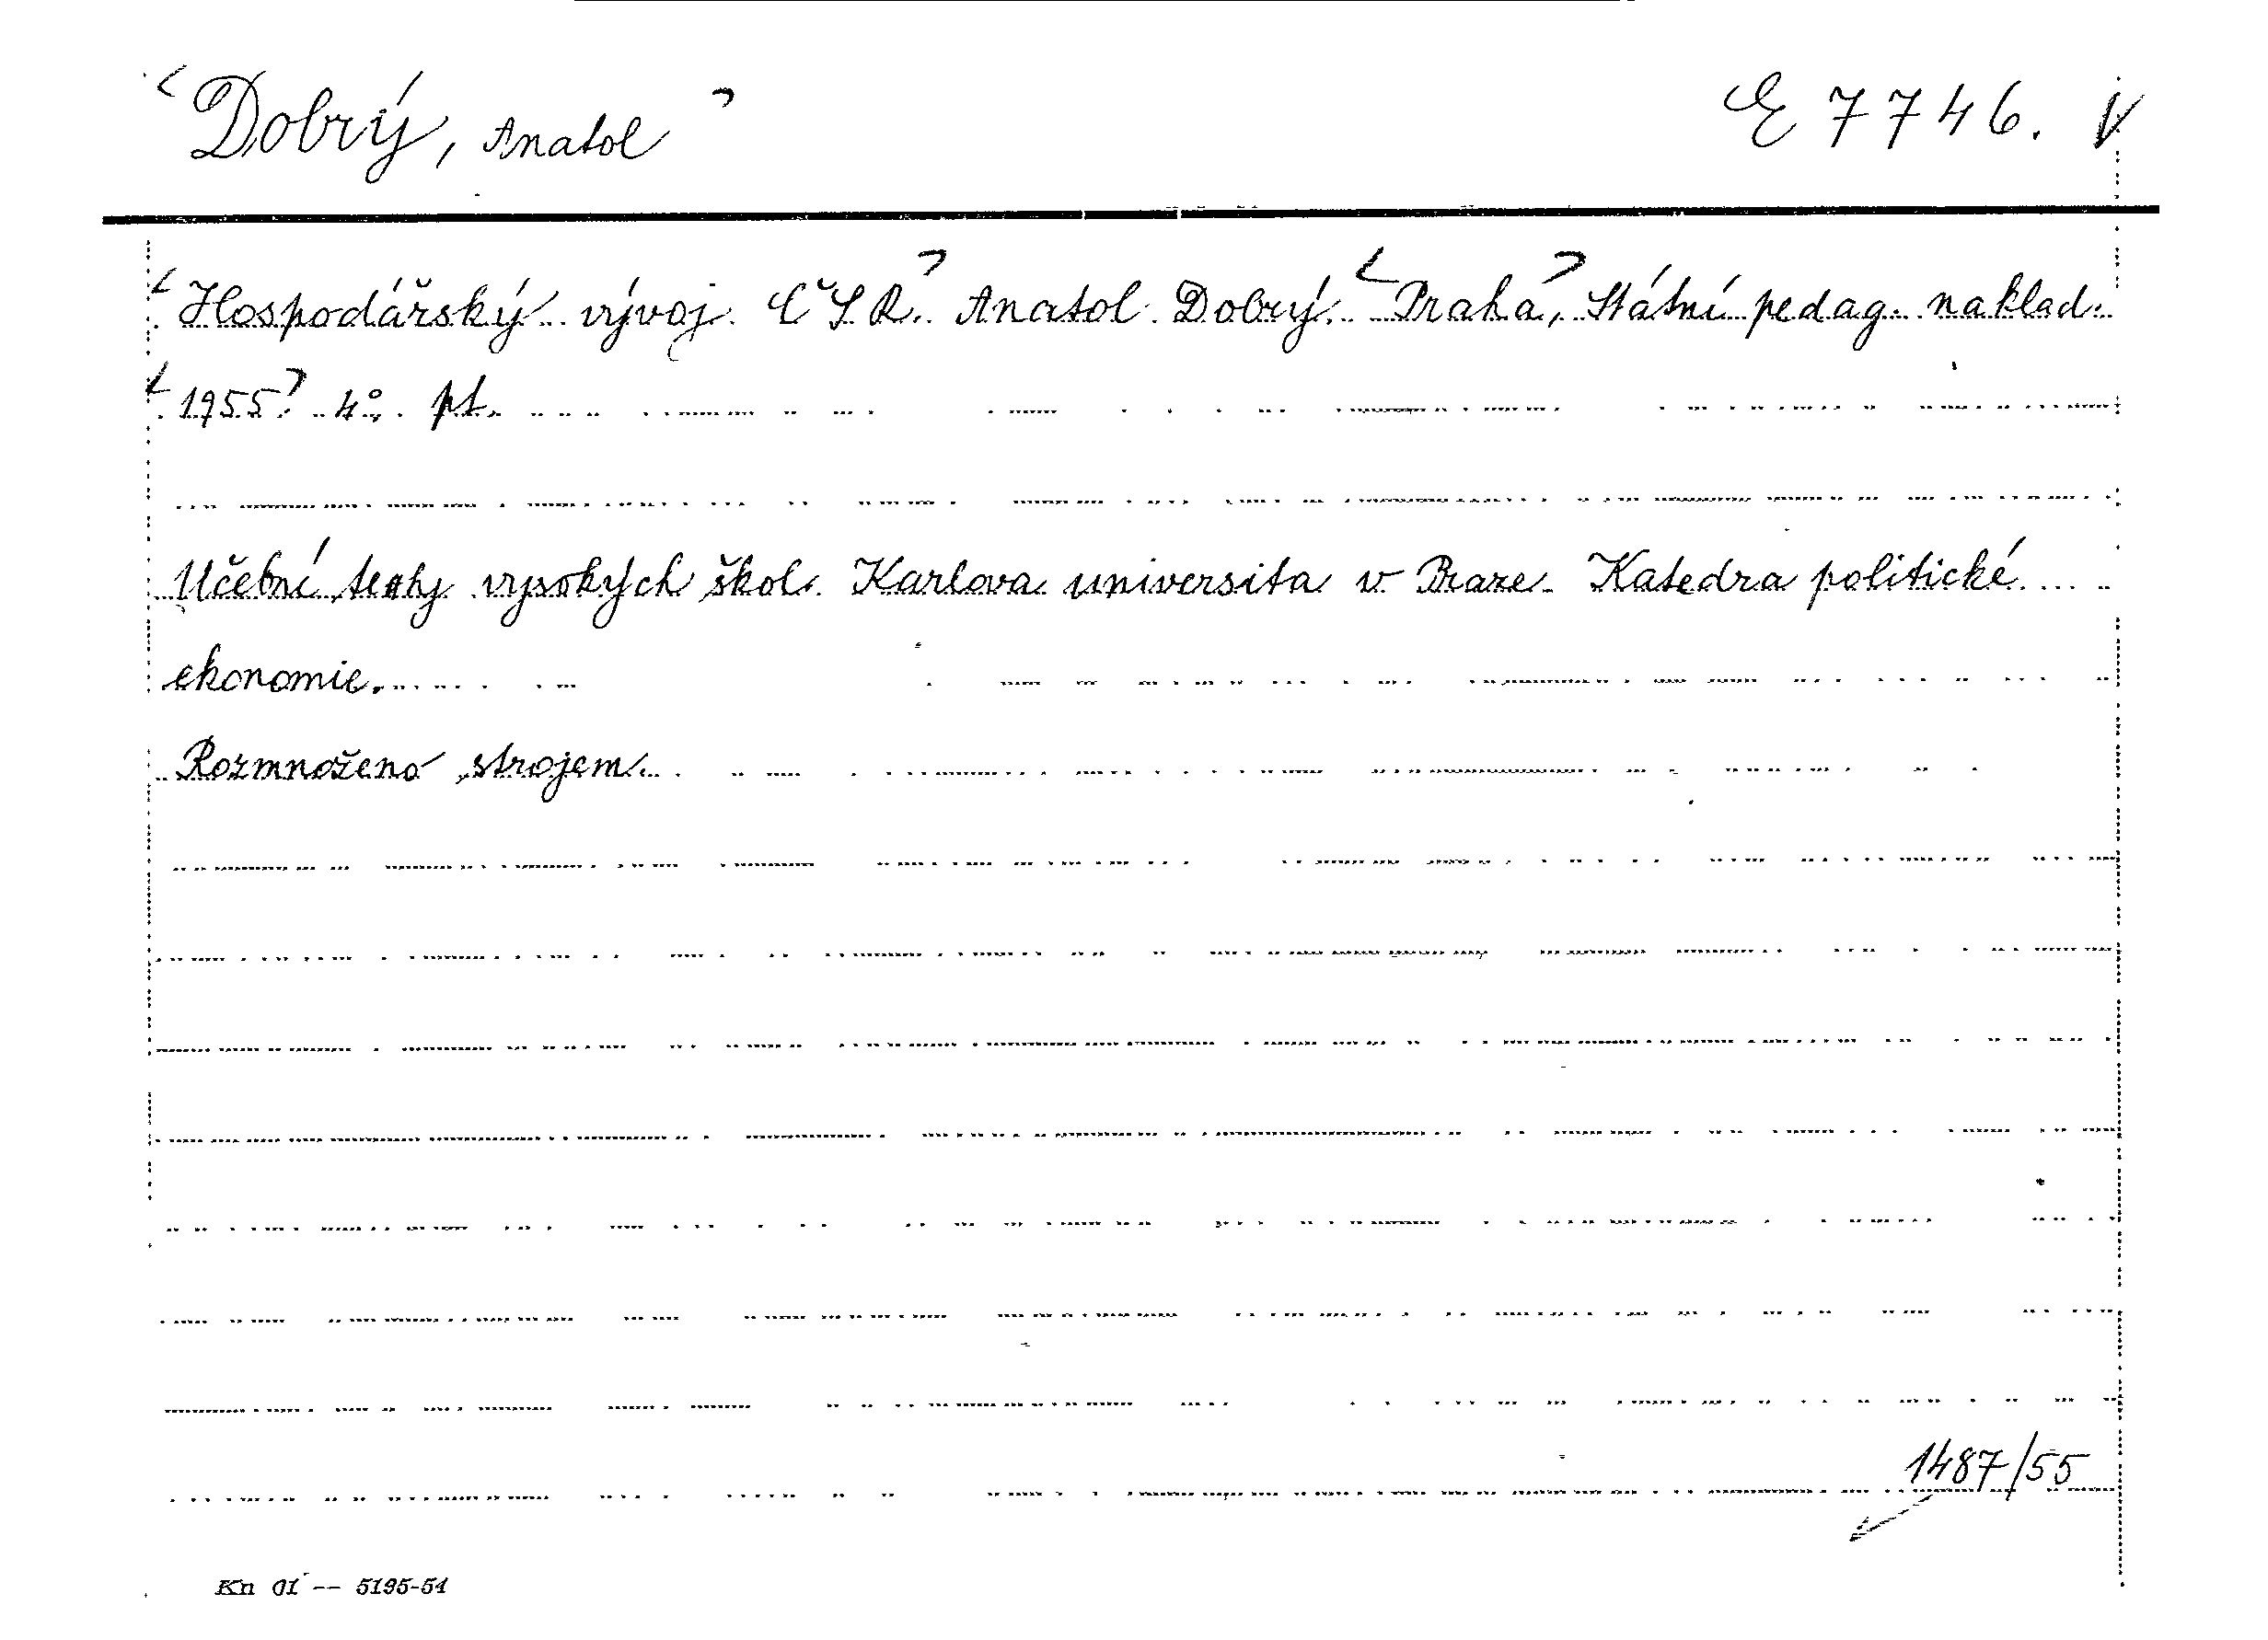 Dobrý, Anatol E 7746.
Hospodářský vývoj ČSR. Anatol Dobrý. Praha, Státní pedag. naklad.
1955. 4°. pt.
Učební texty vysokých škol. Karlova universita v Praze. Katedra politické
ekonomie.
Rozmnoženo strojem.
1487/55
Kn 01 -- 5195-54